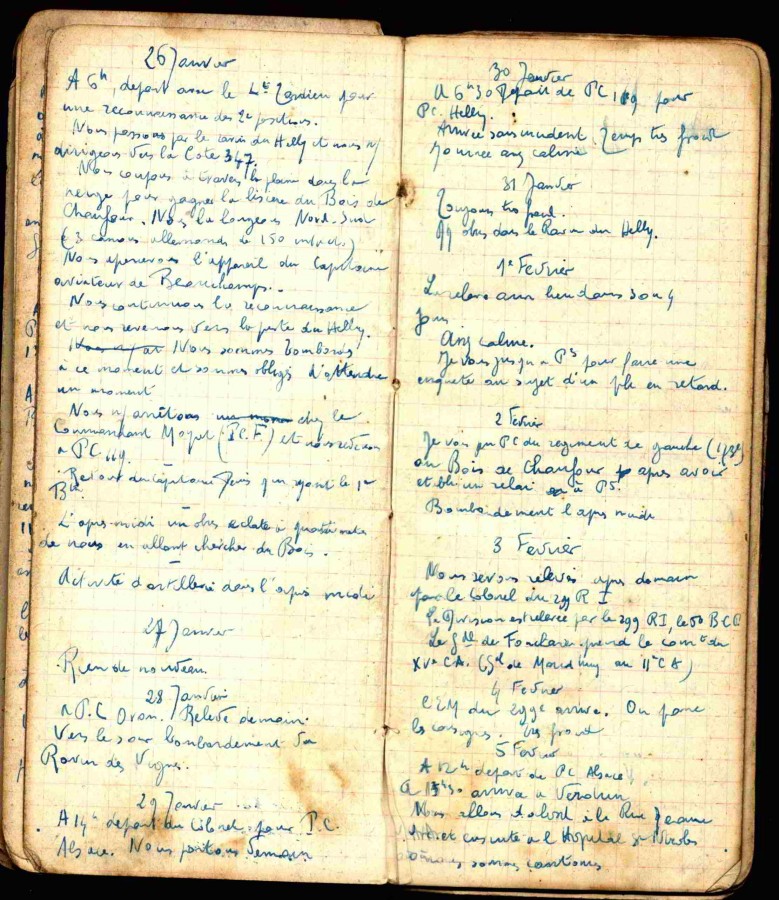 26 Janvier
A 6h, depart avec le Lt pour
une reconnaissance des 2e positions.
Nous passons par le ravin du Helly et nous n/
dirigeons vers la Cote 347.
Nous coupons à travers la plaine dans la
neige pour gagner la lisière du Bois de
Chaufour. Nous la longeons Nord-Sud
(3 canons allemands de 150 intacts)
Nous apercevons l'appareil du Capitaine
aviateur de Beauchamps.
Nous continuons la reconnaissance
et nous revenons vers la du Helly.
Nous sommes bombardés
à ce moment et sommes obligés d'attendre
un moment
Nous n/ arrêtons chez le
Commandant (P.C.F) et nous
à PC 119.
Retour du Capitaine qui rejoint le 1er
Bn.
L'après-midi un obus éclate à quatre mètres
de nous en allant chercher du Bois.
Activité d'artillerie dans l'après midi
27 Janvier
Rien de nouveau.
28 Janvier
A P.C Oran. Relève demain.
Vers le soir bombardement du
Ravin des Vignes.
29 Janvier
A 14h depart du Colonel pour P.C.
Alsace. Nous partons demain
30 Janvier
A 6h30 Départ de PC 119 pour
PC. Helly.
Arrivée sans incident. Temps très froid
Journée assez calme
31 Janvier
Toujours très froid.
obus dans le Ravin du Helly.
1e Fevrier
La relève aura lieu dans 3 ou 4
jours.
Assez calme.
Je vais jusqu'à P5 pour faire une
enquête au sujet d'un pli en retard.
2 Fevrier
Je vais au PC du régiment de gauche
au Bois de Chaufour après avoir
établi un relai à P5.
Bombardement l'après midi
3 Fevrier
Nous serons relevés après demain
par le Colonel du 299 R I
La Division est relevée par le 299 RI, le 50 BCP
Le Gal de Fonclare prend le comt du
XVe CA. (Gal de Maud'huy au 11e CA)
4 Fevrier
L'EM du 299e arrive. On passe
les consignes. Très froid
5 Fevrier
A 12h départ de PC Alsace
A 15h30 arrivée à Verdun
Nous allons d'abord à la Rue Jeanne
d'Arc et ensuite à l'Hôpital St Nicolas
où nous sommes cantonnés